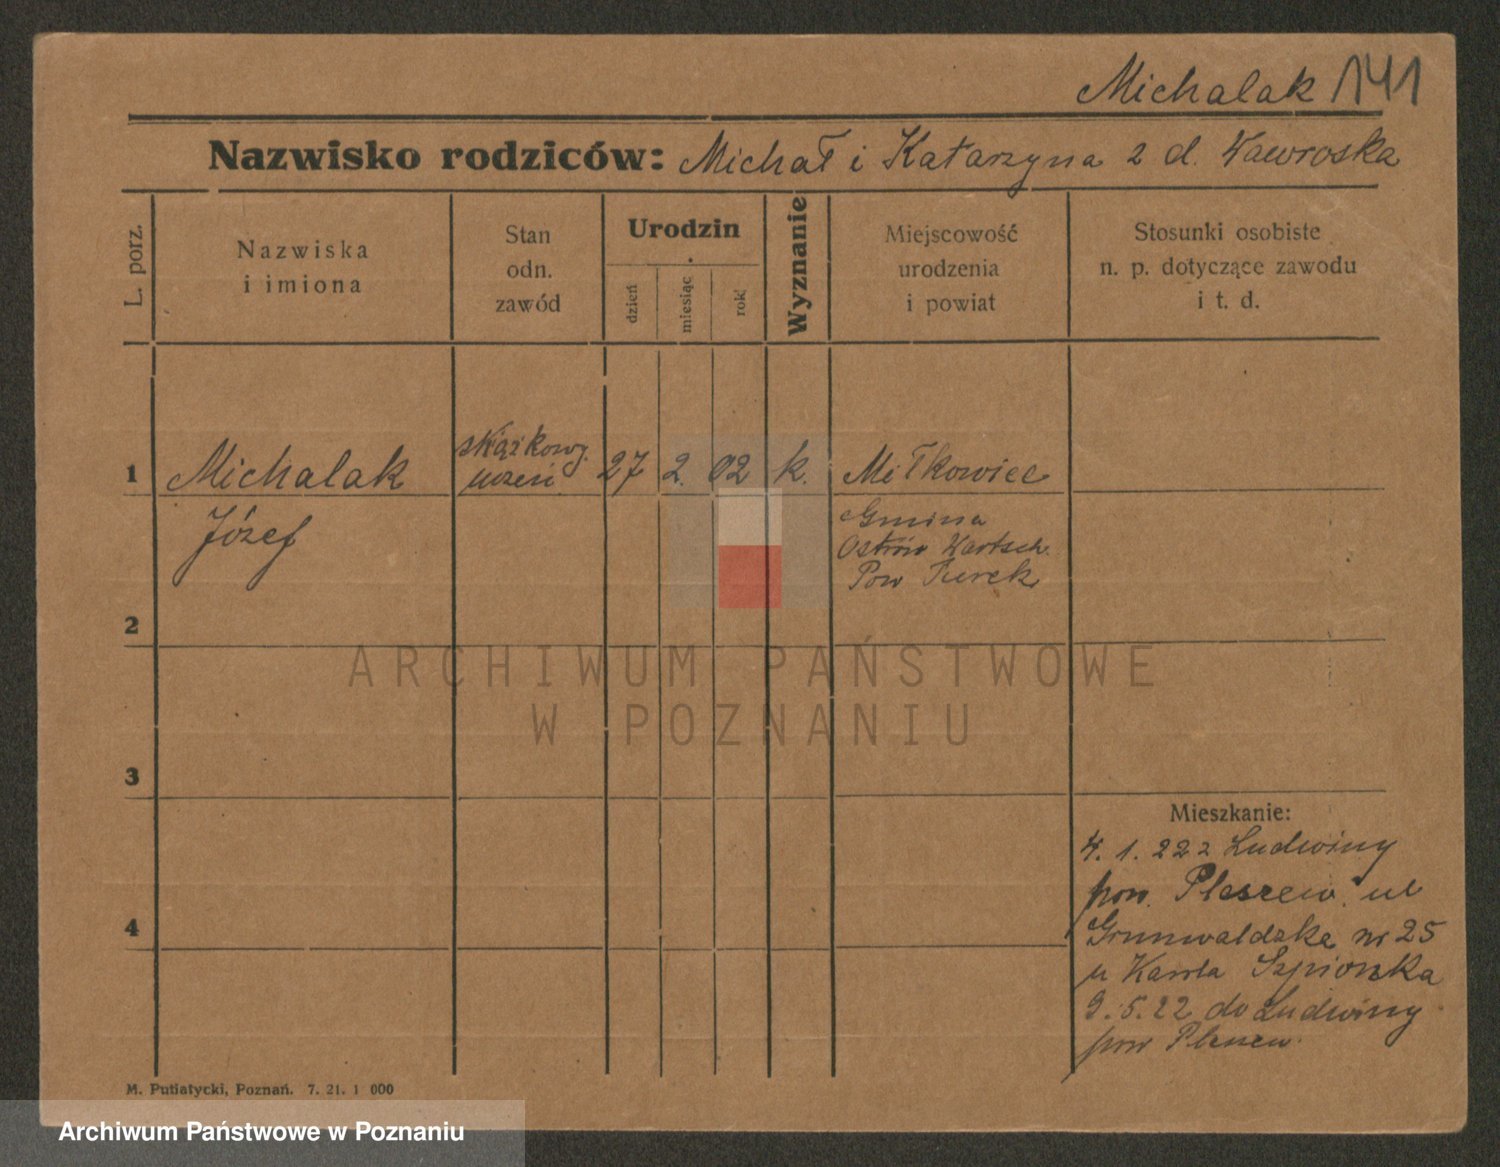 Michalak 141
Nazwisko rodziców: Michał i Katarzyna z d. Wawroska
L. porz.
Nazwiska
i imiona
Stan
odn.
zawód
Urodzin
dzień
miesiąc
rok
Wyznanie
Miejscowość
urodzenia
i powiat
Stosunki osobiste
n. p. dotyczące zawodu
i t. d.
1 Michalak
uczeń 27 2. 02 k. Miłkowiec
Józef
Gmina
Ostrów Wartsch.
Pow Turek
2
3
4
Mieszkanie:
4. 1. 22 z Ludwiny
pow. Pleszew. ul
Grunwaldzka nr 25
u Karola Szpionka
9. 5. 22 do Ludwiny
pow Pleszew.
M. Putiatycki, Poznań. 7. 21. 1 000
ARCHIWUM PAŃSTWOWE
W POZNANIU
Archiwum Państwowe w Poznaniu